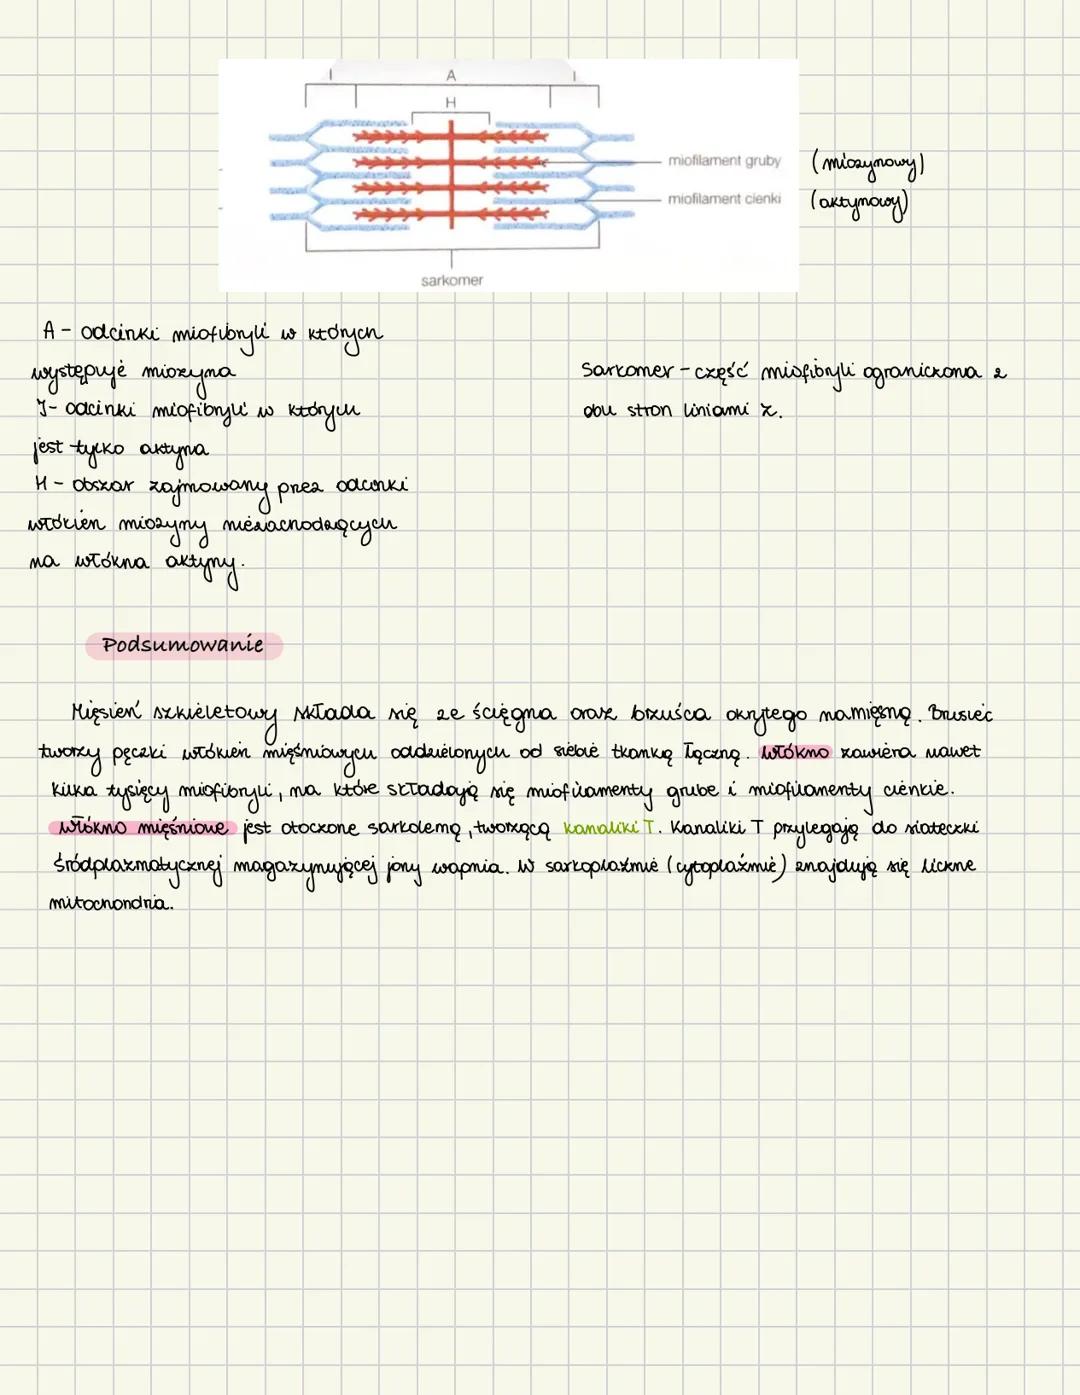 I A I
H
miofilament gruby (miozynowy)
miofilament cienki (aktynowy)
sarkomer
A - odcinki miofibryli w których
występuje miozyna
I - odcinki miofibryli w których
jest tylko aktyna
H - obszar zajmowany przez odcinki
włókien miozyny niezachodzących
na włókna aktyny.
Sarkomer - część miofibryli ograniczona z
obu stron liniami z.
Podsumowanie
Mięsień szkieletowy składa się ze ścięgna oraz brzuśca okrytego namięsną. Brusiec
tworzy pęczki włókien mięśniowych oddzielonych od siebie tkanką łączną. Włókno zawiera nawet
kilka tysięcy miofibryli, na które składają się miofilamenty grube i miofilamenty cienkie.
Włókno mięśniowe jest otoczone sarkolemą, tworzącą kanaliki T. Kanaliki T przylegają do siateczki
śródplazmatycznej magazynującej jony wapnia. W sarkoplaźmie (cytoplaźmie) znajdują się liczne
mitochondria.